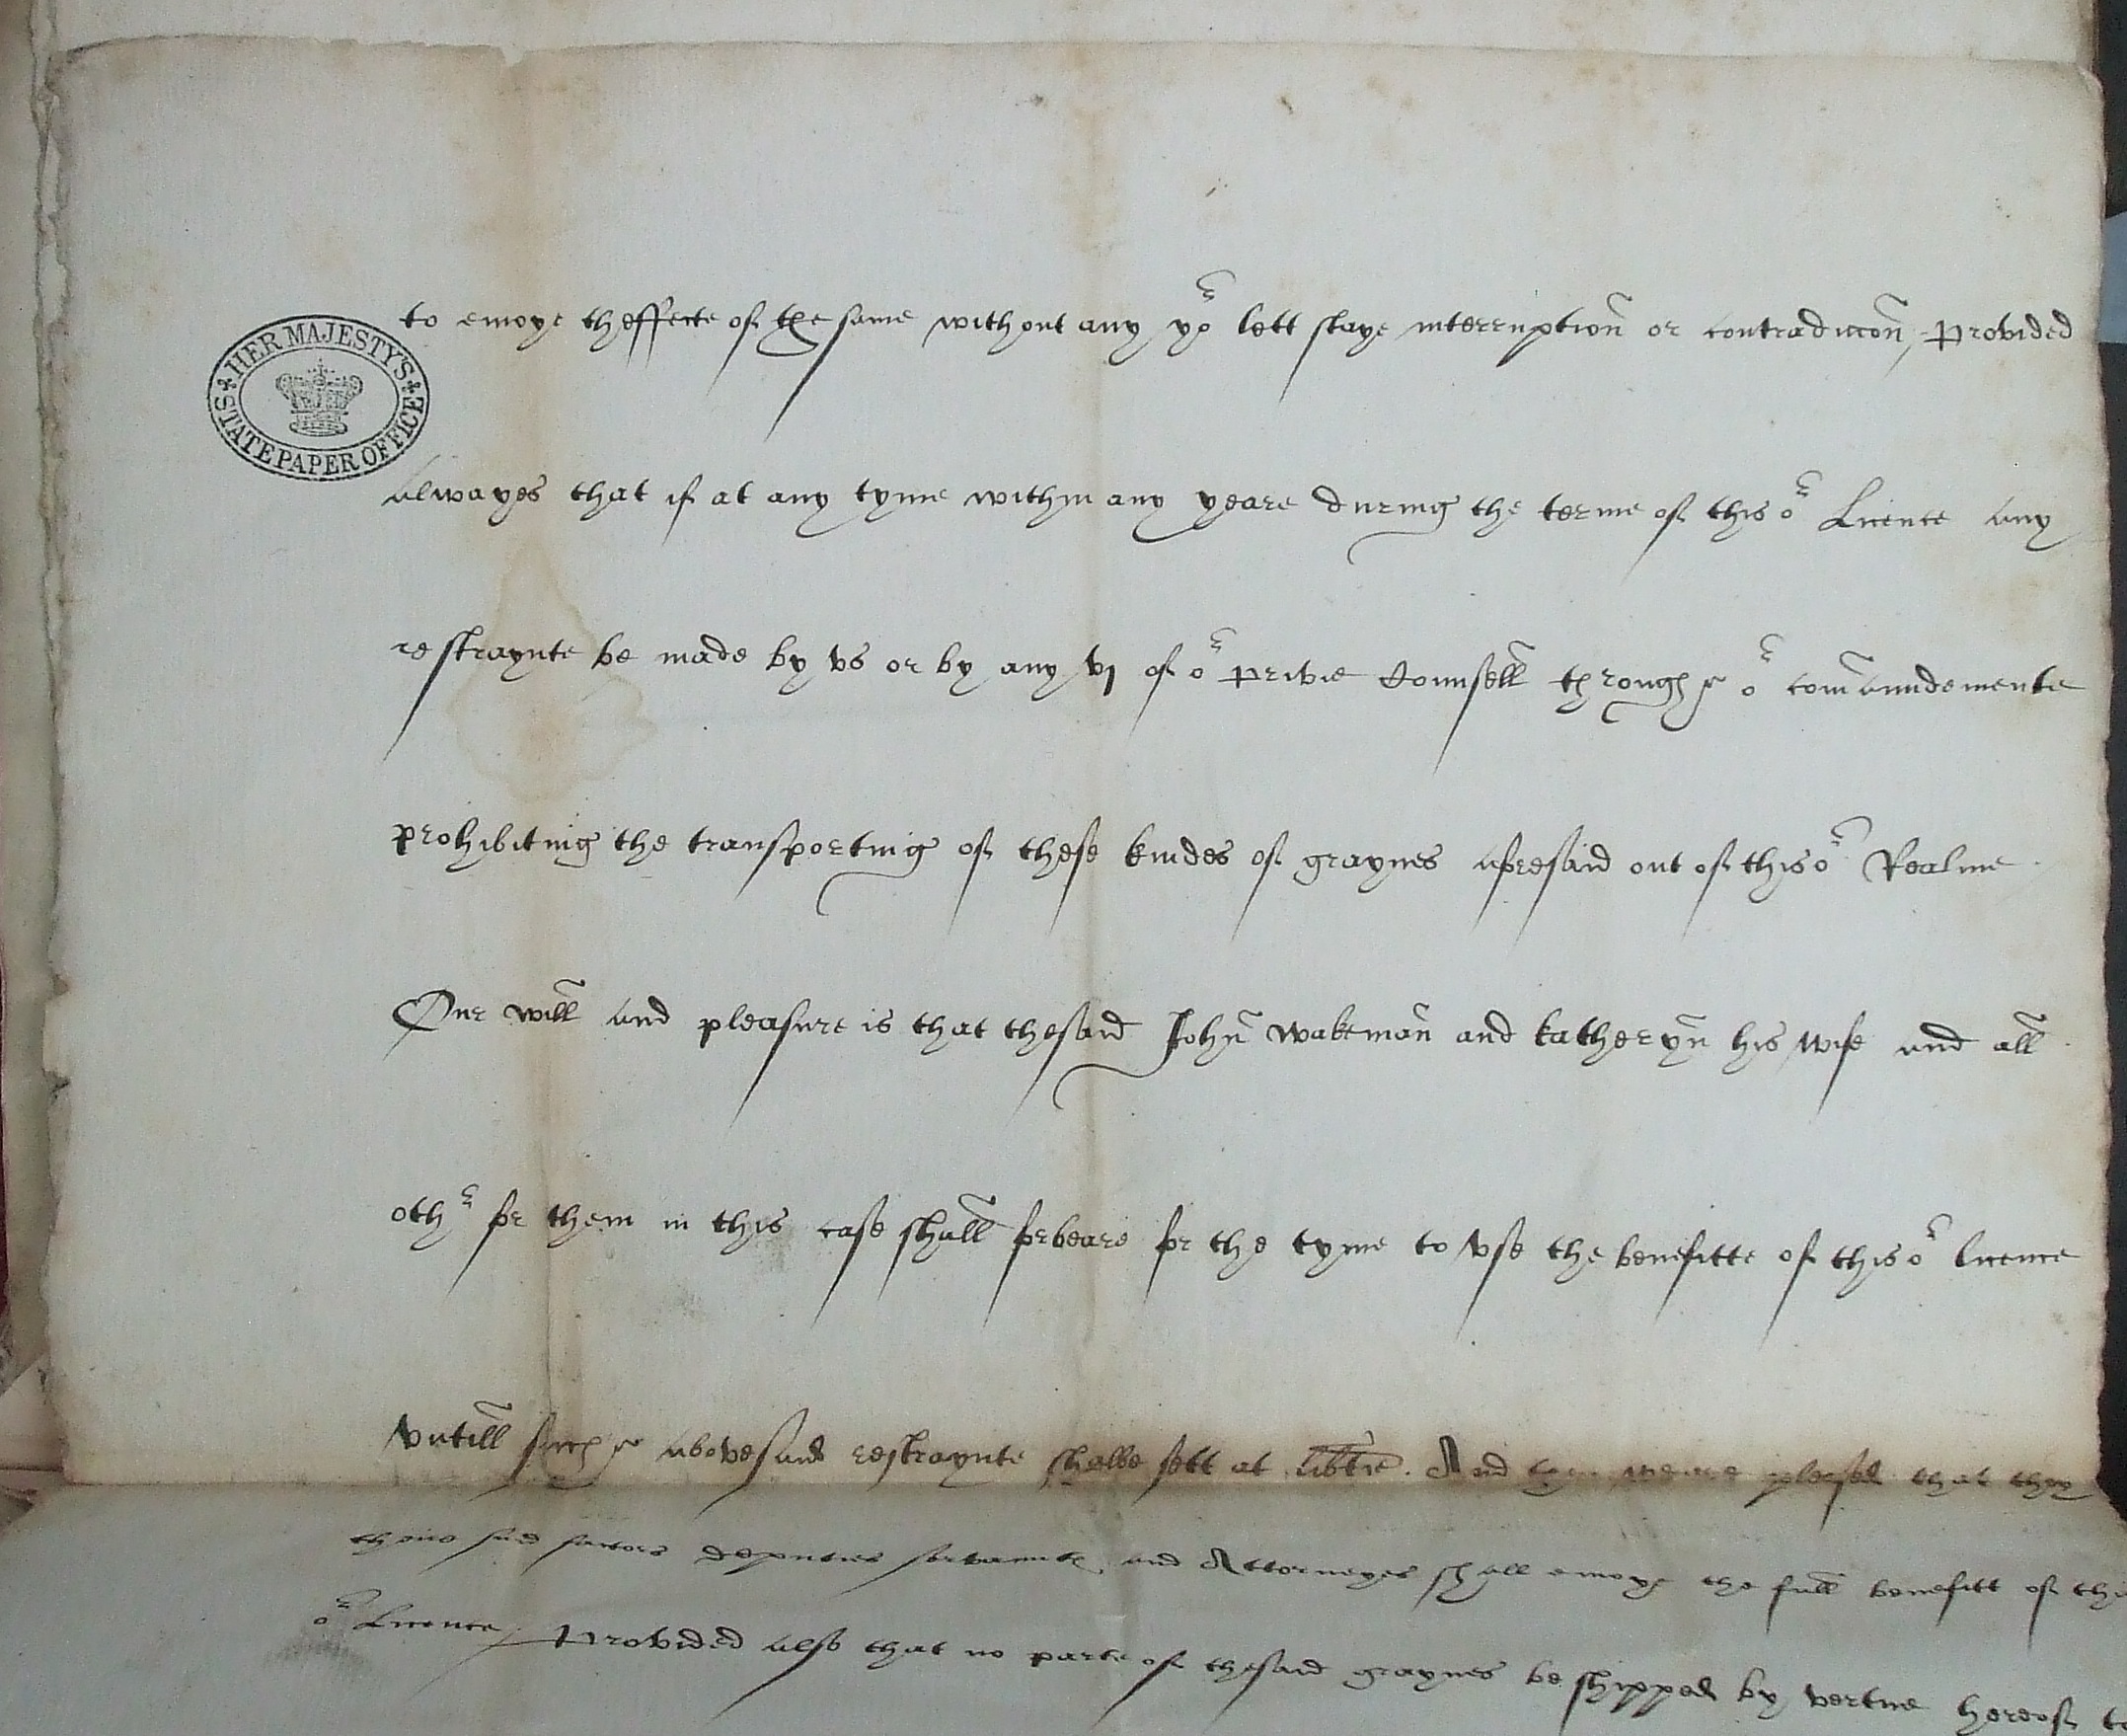 HER MAJESTY'S STATE PAPER OFFICE
to enioye theffecte of the same without any yor lett staye interruption or contradiccon, Provided
alwayes that if at any tyme within any yeare during the terme of this or Licence any
restraynte be made by vs or by any vj of or privie Counsell through or comaundemente
prohibiting the transporting of these kindes of graynes aforesaid out of this or Realme
Our will and pleasure is that thesaid John wakeman and katheryn his wife and all
other for them in this case shall forbeare for the tyme to vse the benefitte of this or licence
vntill such abovesaid restraynte shalbe sett at libtie. And then we are pleased that they
theire said factors deputies servaunts and Attorneyes shall enioye the full benefitt of the
or Licence, Provided also that no parte of thesaid graynes be shipped by vertue hereof